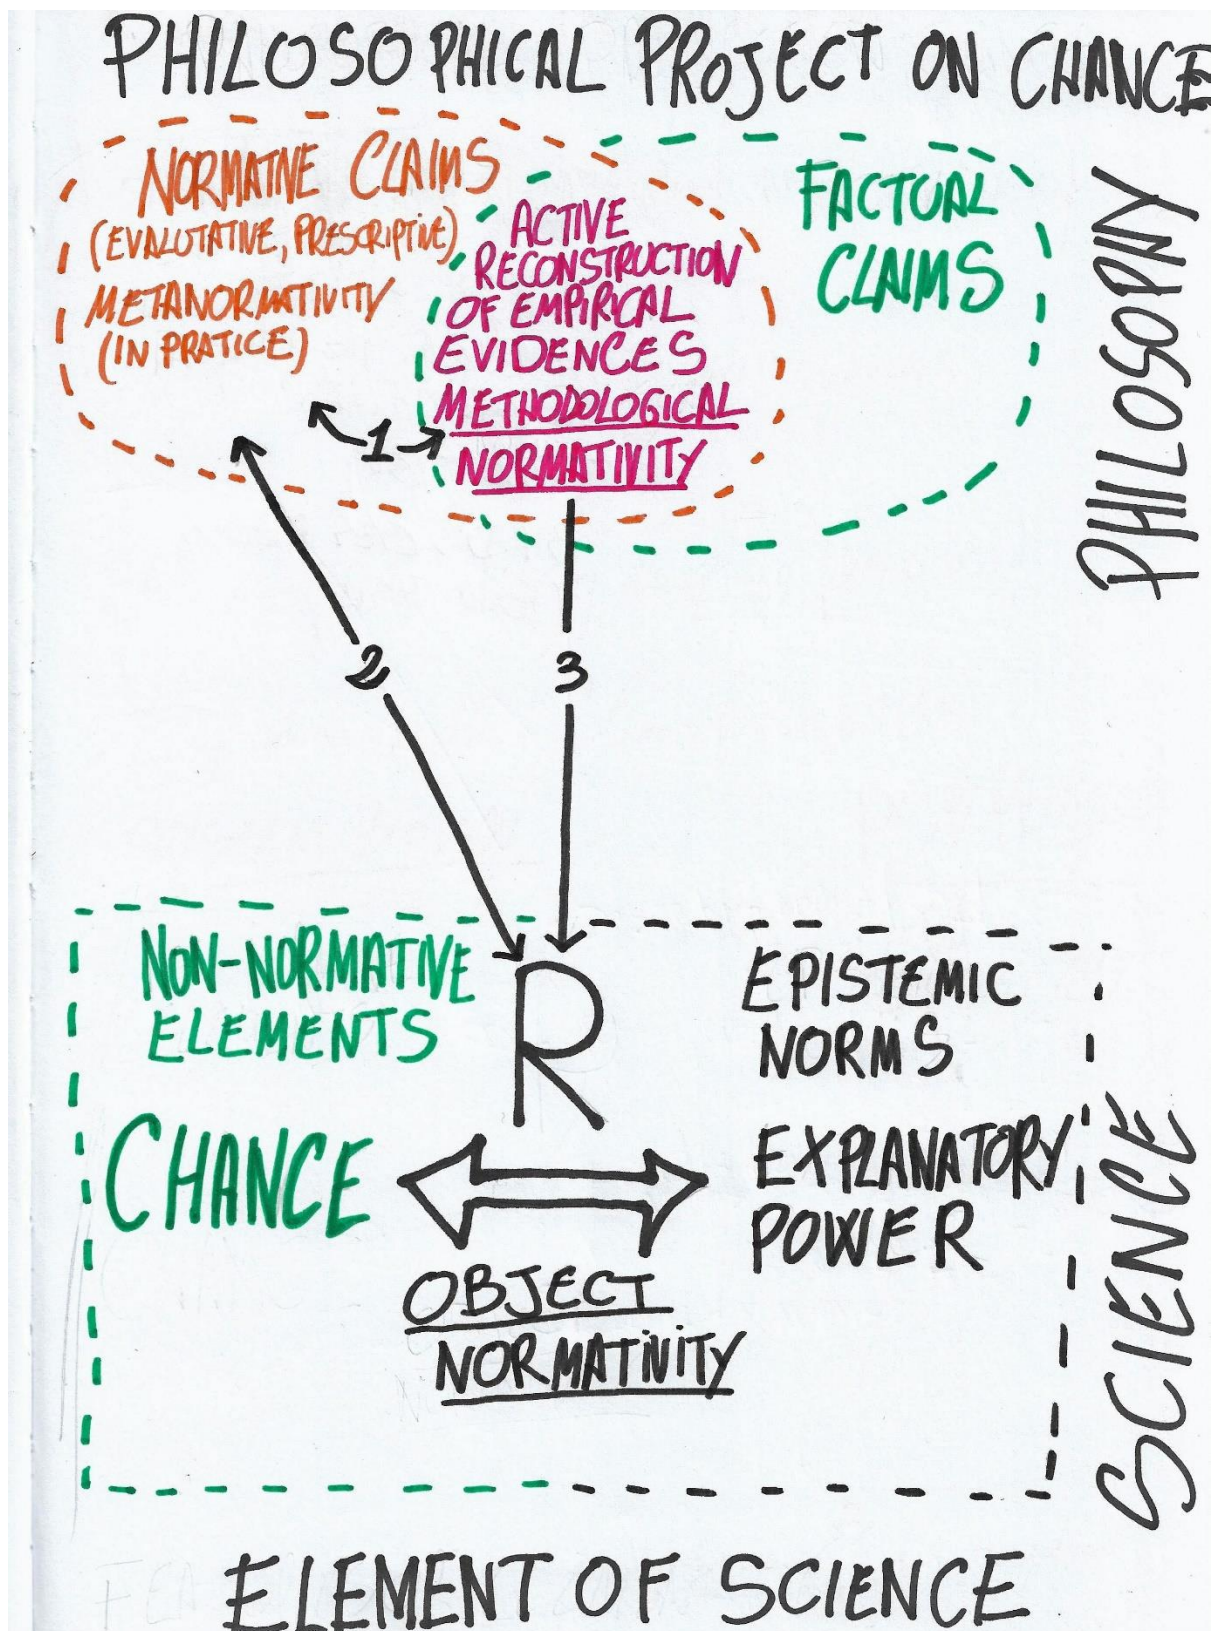 PHILOSOPHICAL PROJECT ON CHANCE
NORMATIVE CLAIMS
(EVALUTATIVE, PRESCRIPTIVE)
METANORMATIVITY
(IN PRATICE)
ACTIVE
RECONSTRUCTION
OF EMPIRICAL
EVIDENCES
METHODOLOGICAL
NORMATIVITY
FACTUAL
CLAIMS
PHILOSOPHY
1
2
3
NON-NORMATIVE
ELEMENTS
R
EPISTEMIC
NORMS
CHANCE
EXPLANATORY
POWER
OBJECT
NORMATIVITY
SCIENCE
ELEMENT OF SCIENCE